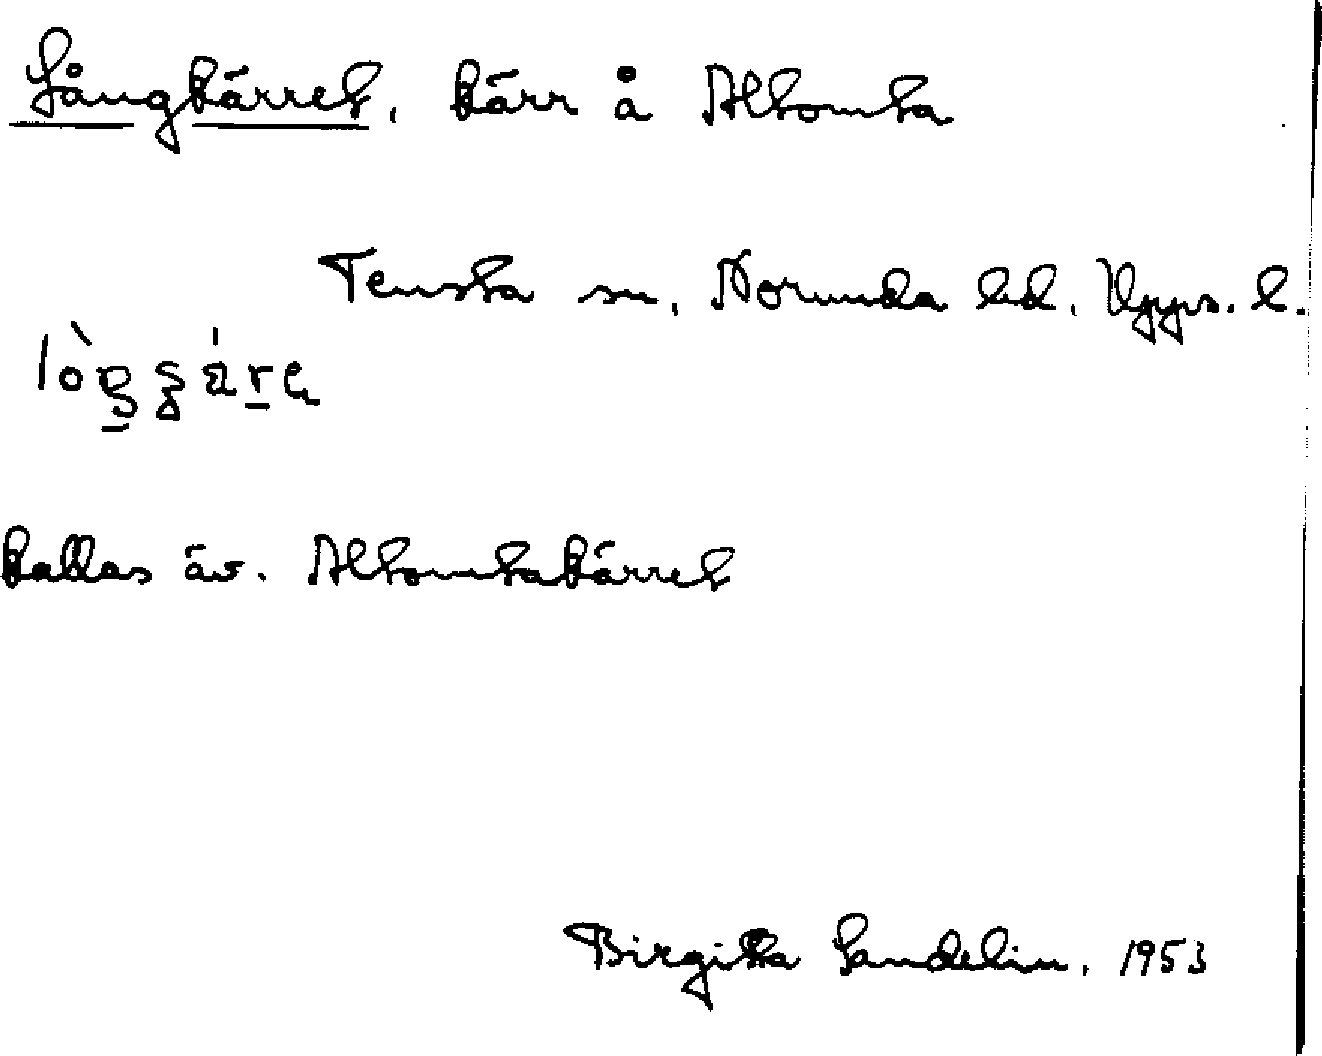 Långkärret, kärr å Altomta
Tensta sn, Norunda hd. Upps. l.
Kallas äv. Altomtakärret
Birgitta Sandelin, 1953